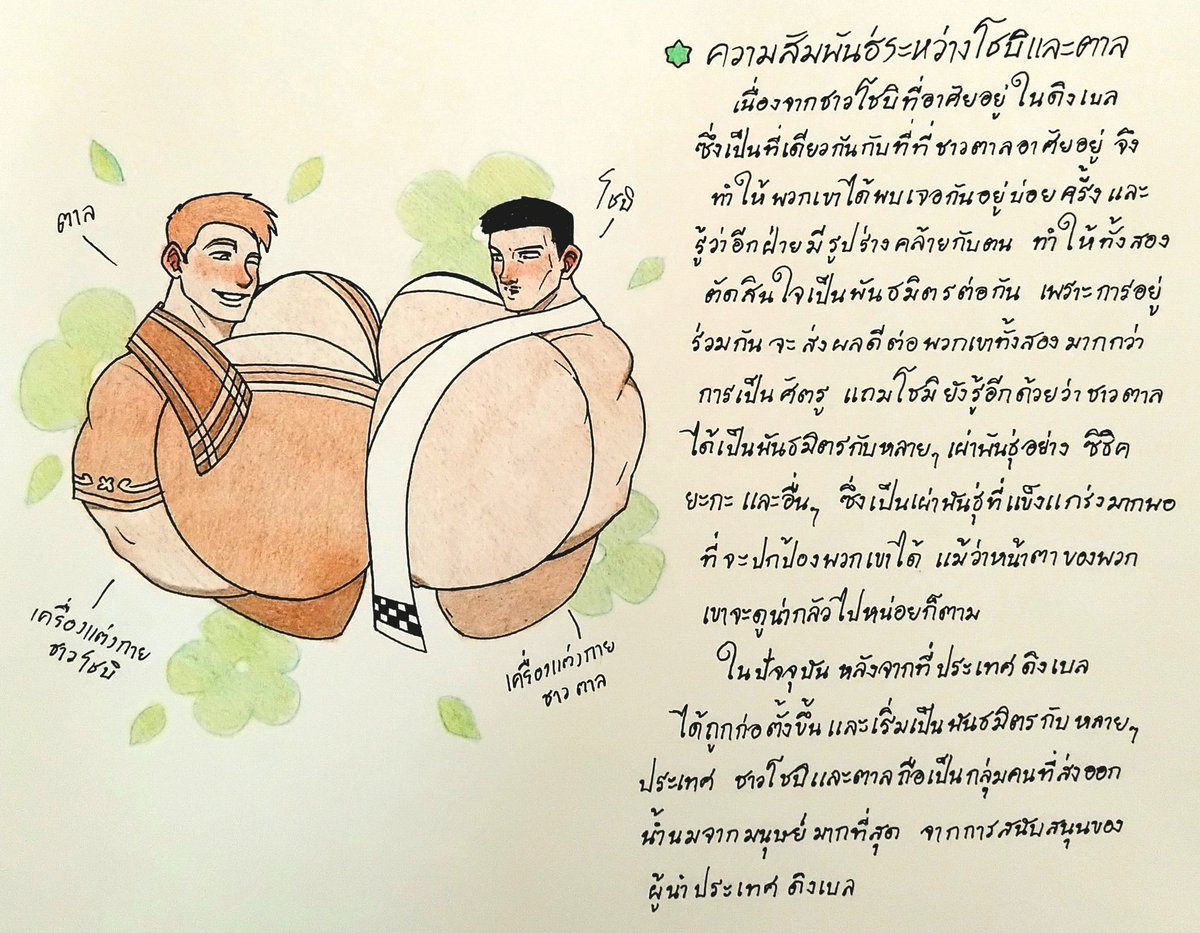 ความสัมพันธ์ระหว่างโชบิและตาล
เนื่องจากชาวโชบิที่อาศัยอยู่ในดิงเบล
ซึ่งเป็นที่เดียวกันกับที่ที่ชาวตาลอาศัยอยู่ จึง
ทำให้พวกเขาได้พบเจอกันอยู่บ่อยครั้ง และ
รู้ว่าอีกฝ่ายมีรูปร่างคล้ายกับตน ทำให้ทั้งสอง
ตัดสินใจเป็นพันธมิตรต่อกัน เพราะการอยู่
ร่วมกันจะส่งผลดีต่อพวกเขาทั้งสองมากกว่า
การเป็นศัตรู แถมโชมิยังรู้อีกด้วยว่าชาวตาล
ได้เป็นพันธมิตรกับหลายๆ เผ่าพันธุ์อย่าง ซีชิค
ยะกะ และอื่นๆ ซึ่งเป็นเผ่าพันธุ์ที่แข็งแกร่งมากพอ
ที่จะปกป้องพวกเขาได้ แม้ว่าหน้าตาของพวก
เขาจะดูน่ากลัวไปหน่อยก็ตาม
ในปัจจุบัน หลังจากที่ประเทศดิงเบล
ได้ถูกก่อตั้งขึ้น และเริ่มเป็นพันธมิตรกับหลายๆ
ประเทศ ชาวโชบิและตาลถือเป็นกลุ่มคนที่ส่งออก
น้ำนมจากมนุษย์มากที่สุด จากการสนับสนุนของ
ผู้นำประเทศดิงเบล
ตาล
โชบิ
เครื่องแต่งกาย
ชาวโชบิ
เครื่องแต่งกาย
ชาวตาล